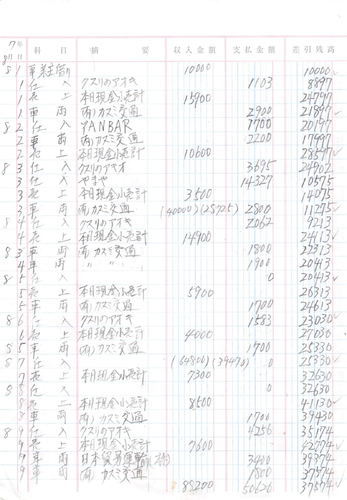 17年
月 日 科 目 摘 要 収入金額 支払金額 差引残高
8 1 事業主借り 10000 10000
1 仕 入 クスリのアオキ 1103 8897
1 売 上 本日現金小売計 15900 24797
1 車 両 (有)カスミ交通 2900 21897
8 2 仕 入 YANBAR 1700 20197
2 車 両 (有)カスミ交通 2200 17997
2 売 上 本日現金小売計 10600 28597
8 3 仕 入 クスリのアオキ 3695 24902
3 仕 入 やまや 14327 10575
3 売 上 本日現金小売計 3500 14075
3 車 両 (有)カスミ交通 (40000) (25725) 2800 11275
8 4 仕 入 クスリのアオキ 2062 9213
4 売 上 本日現金小売計 14900 24113
8 3 車 両 (有)カスミ交通 1800 22313
4 車 両 〃 〃 1900 20413
8 5 仕 入 0 20413
5 売 上 本日現金小売計 5900 26313
5 車 両 (有)カスミ交通 1700 24613
8 6 仕 入 クスリのアオキ 1583 23030
6 売 上 本日現金小売計 4000 27030
5 車 両 (有)カスミ交通 1700 25330
8 7 仕 入 (64800) (39470) 0 25330
7 売 上 本日現金小売計 7300 32630
8 8 仕 入 0 32630
8 売 上 本日現金小売計 8500 41130
8 車 両 (有)カスミ交通 1700 39430
8 9 仕 入 クスリのアオキ 4256 35174
9 売 上 本日現金小売計 7600 42774
9 車 両 日本貿易運輸 3400 39374
9 車 両 (有)カスミ交通 1800 37574
88200 50626 37574